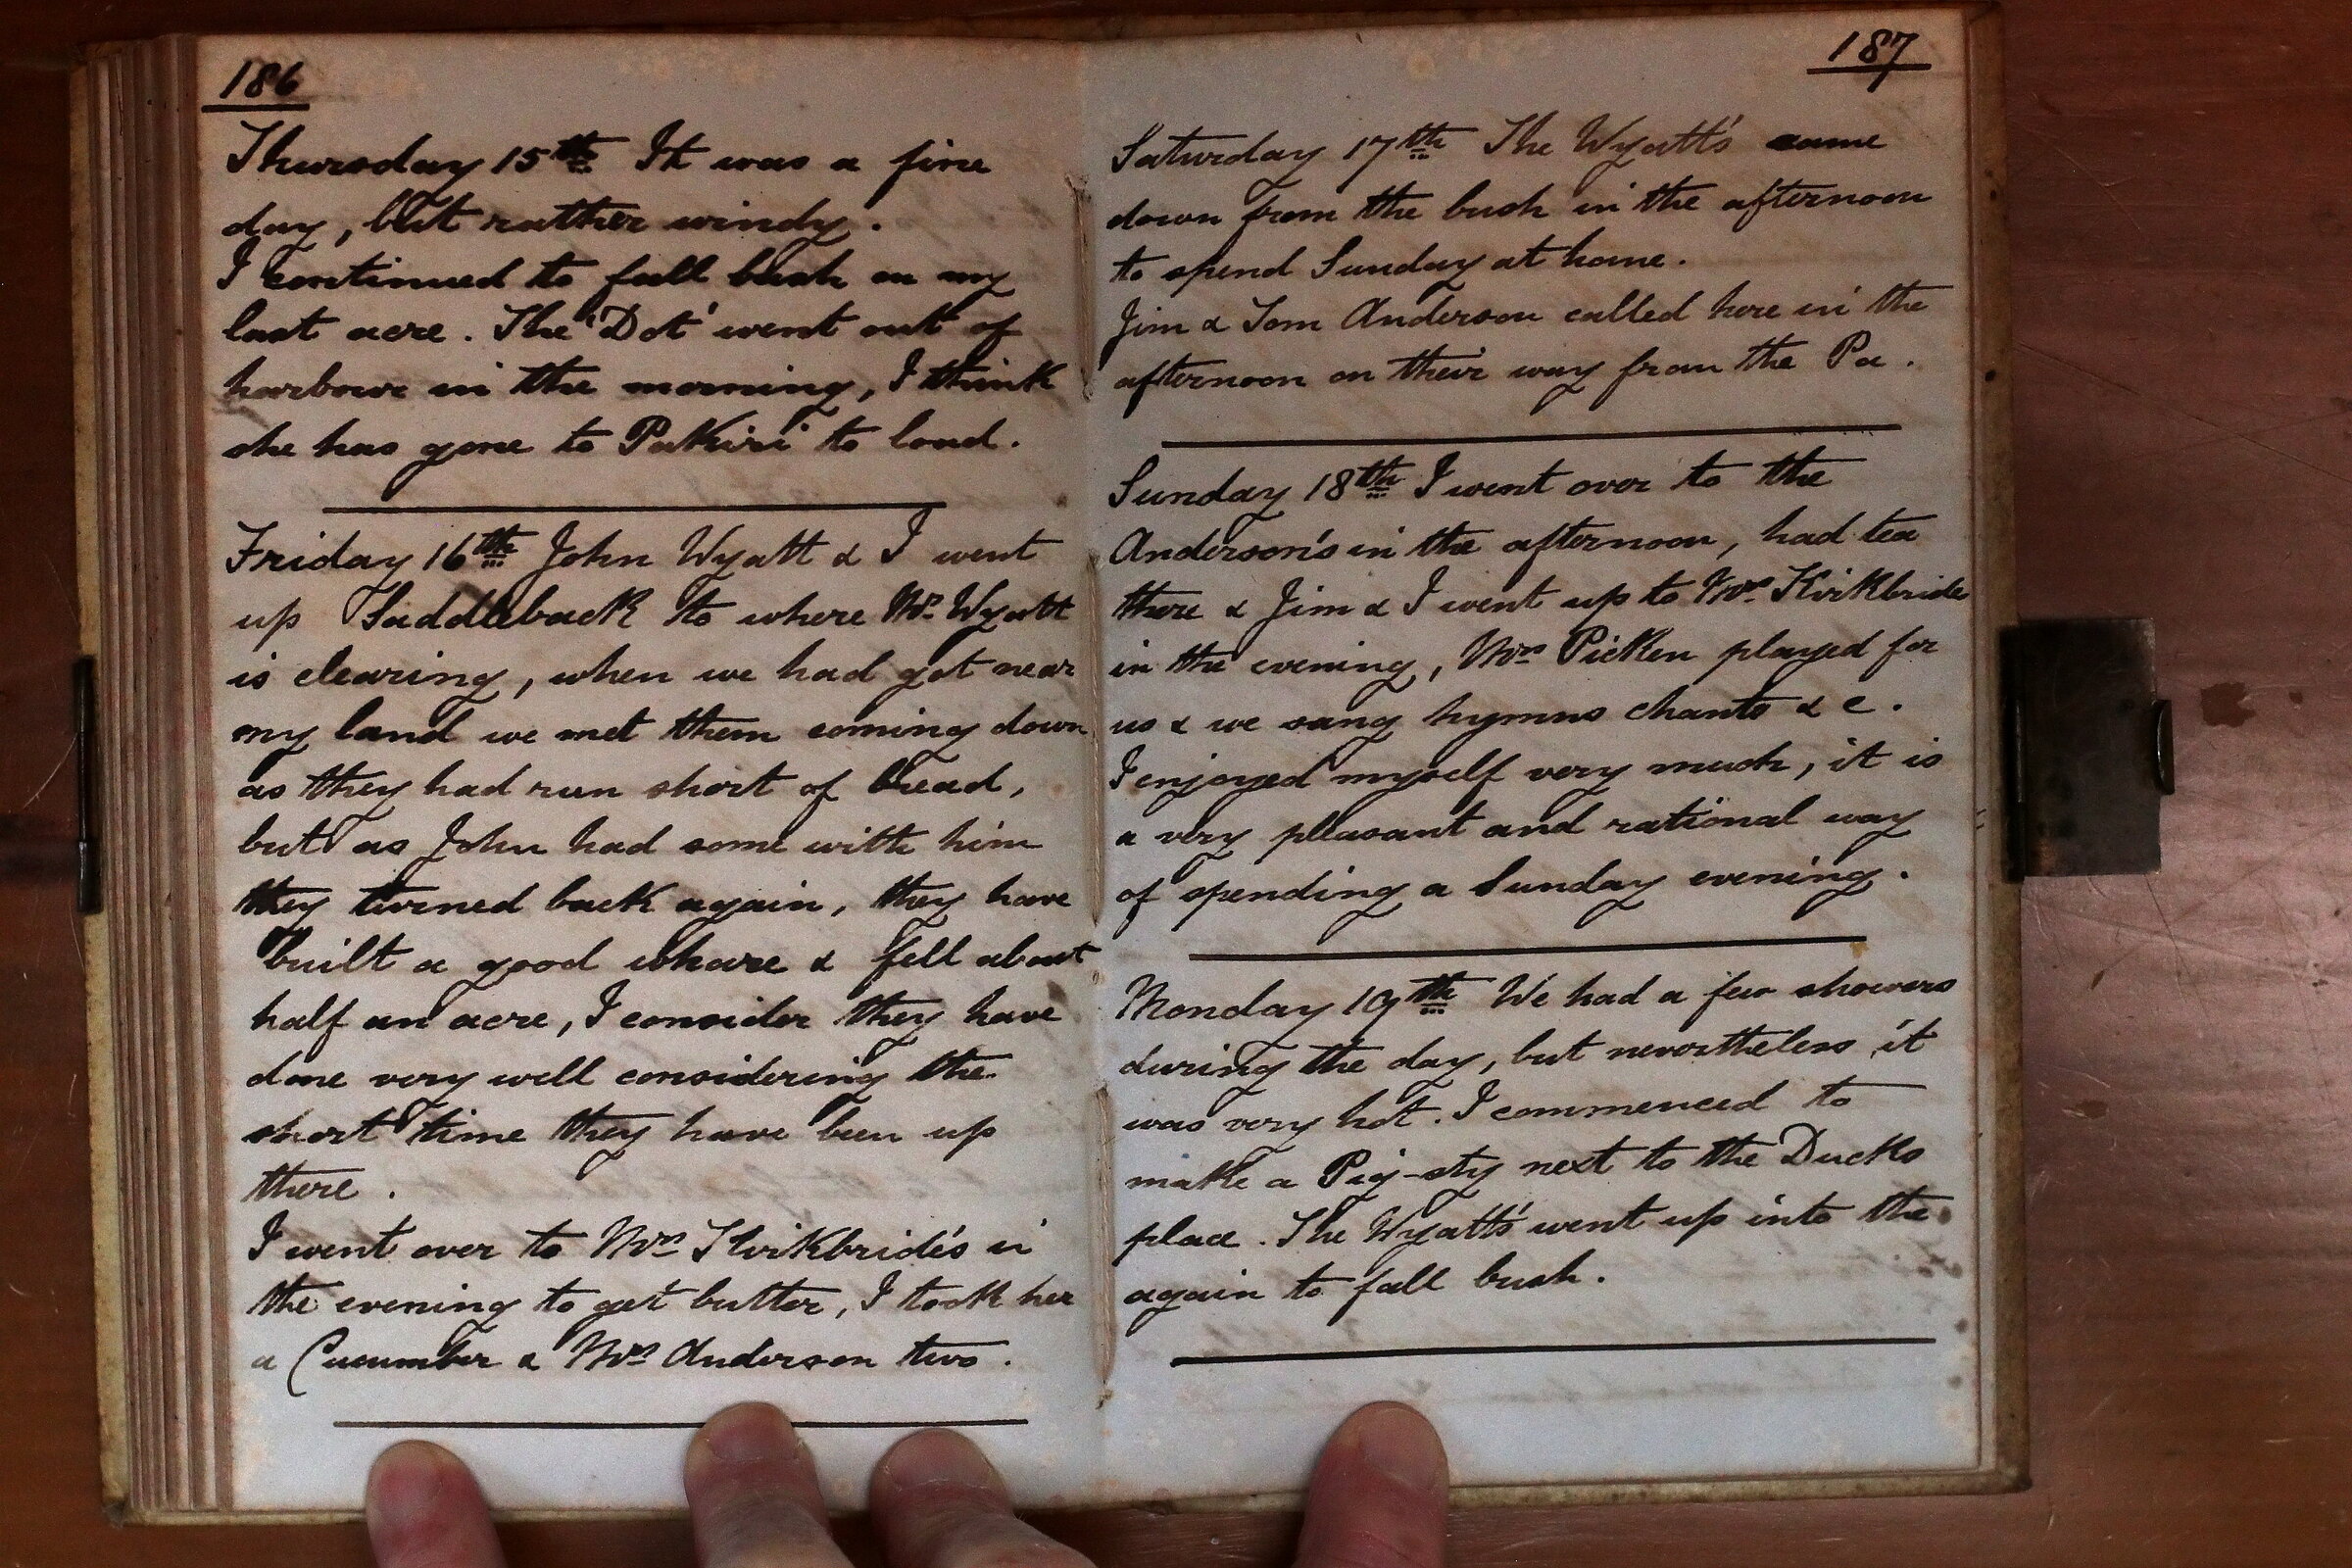 186
Thursday 15th It was a fine
day, but rather windy.
I continued to fall bush on my
last acre. The 'Dot' went out of
harbour in the morning, I think
she has gone to Pakiri to load.
Friday 16th John Wyatt & I went
up Saddleback to where Mr. Wyatt
is clearing, when we had got near
my land we met them coming down
as they had run short of bread,
but as John had some with him
they turned back again, they have
built a good whare & fell about
half an acre, I consider they have
done very well considering the
short time they have been up
there.
I went over to Mrs Kirkbride's in
the evening to get butter, I took her
a Cucumber & Mrs Anderson two.
187
Saturday 17th The Wyatt's came
down from the bush in the afternoon
to spend Sunday at home.
Jim & Tom Anderson called here in the
afternoon on their way from the Pa.
Sunday 18th I went over to the
Anderson's in the afternoon, had tea
there & Jim & I went up to Mrs. Kirkbride
in the evening, Mrs Picken played for
us & we sang hymns chants & c.
I enjoyed myself very much, it is
a very pleasant and rational way
of spending a Sunday evening.
Monday 19th We had a few showers
during the day, but nevertheless it
was very hot. I commenced to
make a Pig-sty next to the Ducks
place. The Wyatt's went up into the
again to fall bush.